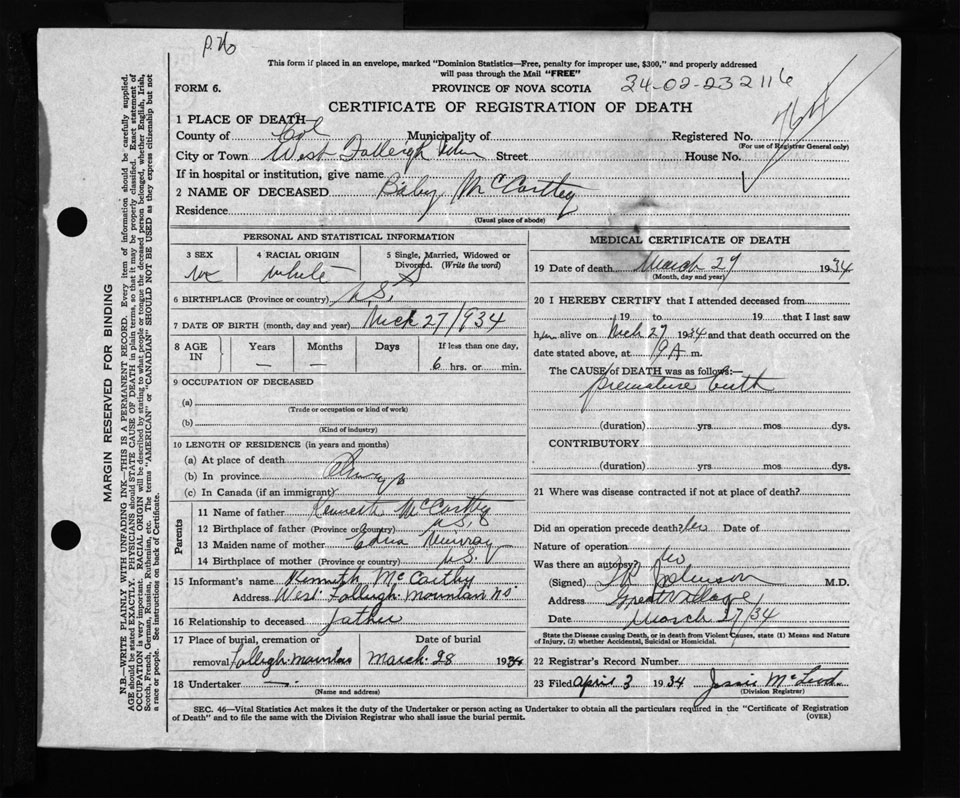 P. 76
This form if placed in an envelope, marked "Dominion Statistics—Free, penalty for improper use, $300," and properly addressed
will pass through the Mail "FREE"
FORM 6.
PROVINCE OF NOVA SCOTIA
34-02-232116
CERTIFICATE OF REGISTRATION OF DEATH
764
1 PLACE OF DEATH
County of Col Municipality of
Registered No.
(For use of Registrar General only)
City or Town West Folleigh Street House No.
If in hospital or institution, give name
2 NAME OF DECEASED Baby McCarthy
Residence
(Usual place of abode)
PERSONAL AND STATISTICAL INFORMATION
3 SEX 4 RACIAL ORIGIN 5 Single, Married, Widowed or Divorced. (Write the word)
M white S
6 BIRTHPLACE (Province or country) N.S.
7 DATE OF BIRTH (month, day and year) Mch 27/1934
8 AGE IN Years Months Days If less than one day,
— — 6 hrs. or min.
9 OCCUPATION OF DECEASED
(a)
(Trade or occupation or kind of work)
(b)
(Kind of industry)
10 LENGTH OF RESIDENCE (in years and months)
(a) At place of death
(b) In province Always
(c) In Canada (if an immigrant)
Parents
11 Name of father Kenneth McCarthy
12 Birthplace of father (Province or country) N.S.
13 Maiden name of mother Edna Murray
14 Birthplace of mother (Province or country) N.S.
15 Informant's name Kenneth McCarthy
Address West Folleigh Mountain NS
16 Relationship to deceased father
17 Place of burial, cremation or removal Folleigh Mountain
Date of burial March 28 1934
18 Undertaker —
(Name and address)
MEDICAL CERTIFICATE OF DEATH
19 Date of death March 27 1934
(Month, day and year)
20 I HEREBY CERTIFY that I attended deceased from
19 to 19 that I last saw
him alive on Mch 27 1934 and that death occurred on the
date stated above, at 9 A m.
The CAUSE of DEATH was as follows:—
premature birth
(duration) yrs mos dys.
CONTRIBUTORY
(duration) yrs. mos. dys.
21 Where was disease contracted if not at place of death?
Did an operation precede death? No Date of
Nature of operation
Was there an autopsy? No
(Signed) Johnson M.D.
Address Great Village
Date March 27/34
State the Disease causing Death, or in death from Violent Causes, state (1) Means and Nature
of Injury, (2) whether Accidental, Suicidal or Homicidal.
22 Registrar's Record Number
23 Filed April 3 1934 Jessie McLeod
(Division Registrar)
SEC. 46—Vital Statistics Act makes it the duty of the Undertaker or person acting as Undertaker to obtain all the particulars required in the "Certificate of Registration
of Death" and to file the same with the Division Registrar who shall issue the burial permit.
(OVER)
MARGIN RESERVED FOR BINDING
N.B.—WRITE PLAINLY WITH UNFADING INK—THIS IS A PERMANENT RECORD. Every item of information should be carefully supplied.
AGE should be stated EXACTLY. PHYSICIANS should STATE CAUSE OF DEATH in plain terms, so that it may be properly classified. Exact statement of
OCCUPATION is very important. RACIAL ORIGIN will be described by stating to what people or tongue the deceased person belonged, whether English, Irish,
Scotch, French, German, Russian, Ruthenian, etc. The terms "AMERICAN" or "CANADIAN" SHOULD NOT BE USED as they express citizenship but not
a race or people. See instructions on back of Certificate.